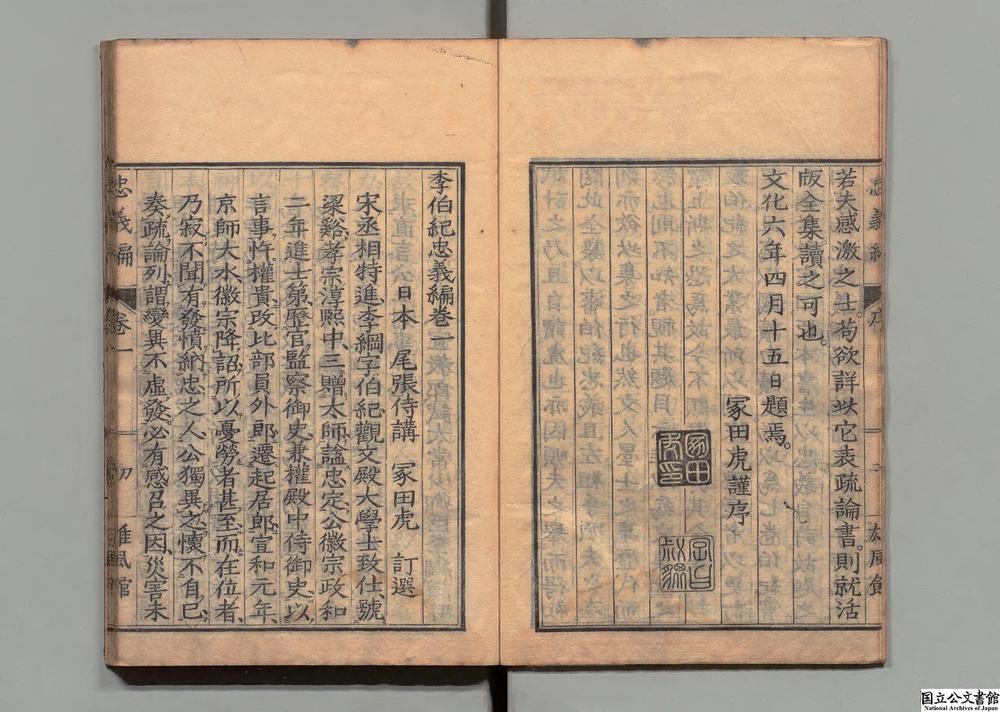 若夫感激之士。苟欲詳其它表疏論書。則就活
版全集讀之可也。
文化六年四月十五日題焉。
冢田虎謹序
忠義編 序
二
雄風館
李伯紀忠義編卷一
日本 尾張侍講 冢田虎 訂選
宋丞相特進李綱字伯紀觀文殿大學士致仕號
梁谿孝宗淳熙中三贈太師諡忠定公徽宗政和
二年進士第歷官監察御史兼權殿中侍御史以
言事忤權貴改比部員外郎遷起居郎宣和元年
京師大水徽宗降詔所以憂勞者甚至而在位者
乃寂不聞有發憤納忠之人公獨異之懷不自已
奏疏論列謂變異不虛發必有感召之因災害未
忠義編 卷一
雄風館
国立公文書館
National Archives of Japan